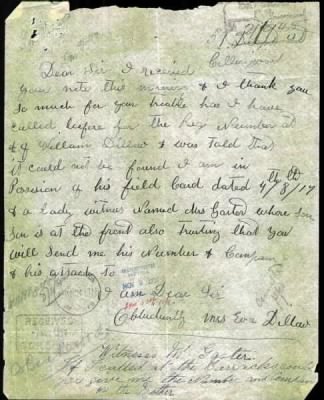 Collingwood
Dear Sir I received
your note this morning & I thank you
so much for your trouble has I have
called before for the Reg Number at
of William Dillow & was told that
it could not be found I am in
Possesion of his field Card dated 4th/8/17
& a Lady witness Named Mrs Garter where son
Son is at the front also trusting that you
will Send me his Number & Company
& his
I am Dear Sir
Obbluntly Mrs Eva Dillow
Witness M. Garter
I called at the Barracks could
you give me the Number and company